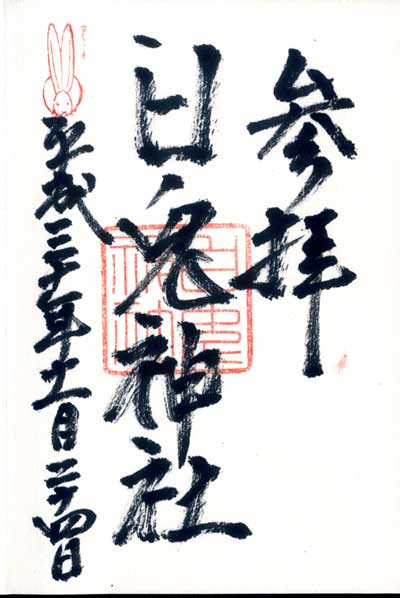 参拝
白兎神社
平成二十年十一月二十四日